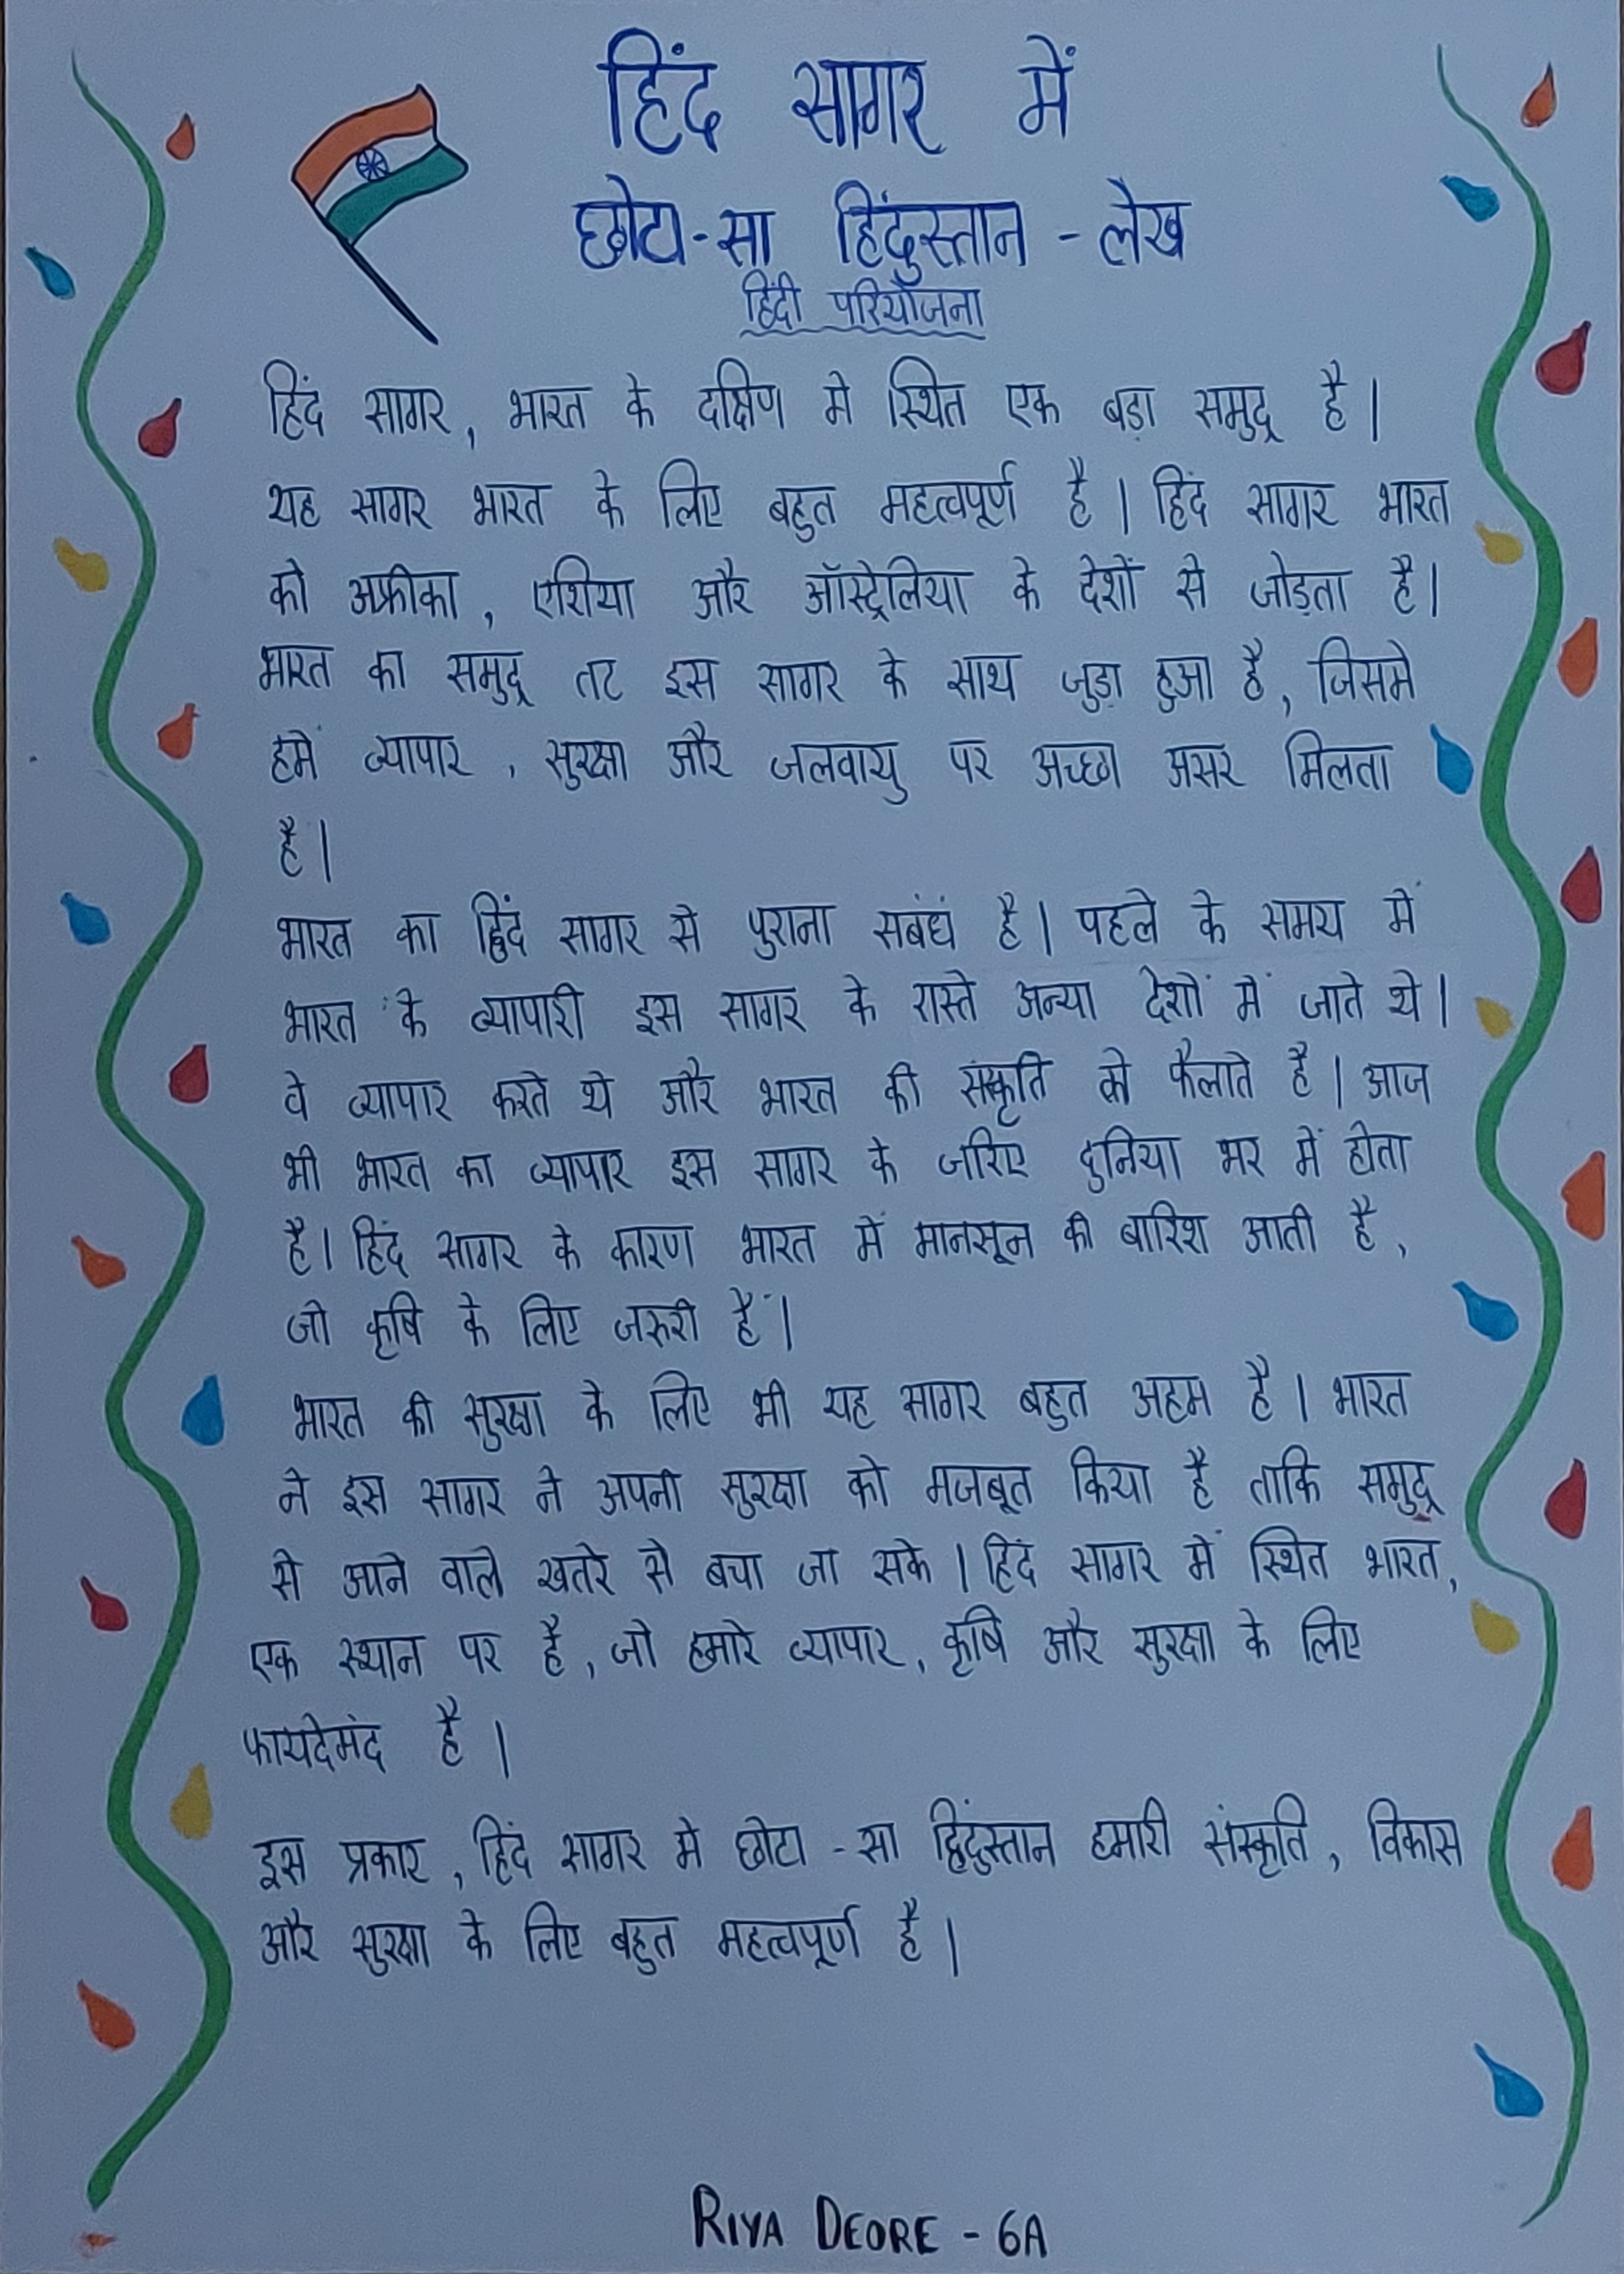 हिंद सागर में
छोटा-सा हिंदुस्तान - लेख
हिंदी परियोजना
हिंद सागर, भारत के दक्षिण मे स्थित एक बड़ा समुद्र है।
यह सागर भारत के लिए बहुत महत्वपूर्ण है। हिंद सागर भारत
को अफ्रीका, एशिया और ऑस्ट्रेलिया के देशों से जोड़ता है।
भारत का समुद्र तट इस सागर के साथ जुड़ा हुआ है, जिसमे
हमें व्यापार, सुरक्षा और जलवायु पर अच्छा असर मिलता
है।
भारत का हिंद सागर से पुराना सबंधं है। पहले के समय में
भारत के व्यापारी इस सागर के रास्ते अन्या देशों में जाते थे।
वे व्यापार करते थे और भारत की संस्कृति को फैलाते है। आज
भी भारत का व्यापार इस सागर के जरिए दुनिया भर में होता
है। हिंद सागर के कारण भारत में मानसून की बारिश आती है,
जो कृषि के लिए जरुरी हैं।
भारत की सुरक्षा के लिए भी यह सागर बहुत अहम है। भारत
ने इस सागर ने अपनी सुरक्षा को मजबूत किया है ताकि समुद्र
से आने वाले खतरे से बचा जा सके। हिंद सागर में स्थित भारत,
एक स्थान पर है, जो हमारे व्यापार, कृषि और सुरक्षा के लिए
फायदेमंद है।
इस प्रकार, हिंद सागर मे छोटा-सा हिंदुस्तान हमारी संस्कृति, विकास
और सुरक्षा के लिए बहुत महत्वपूर्ण है।
RIYA DEORE - 6A